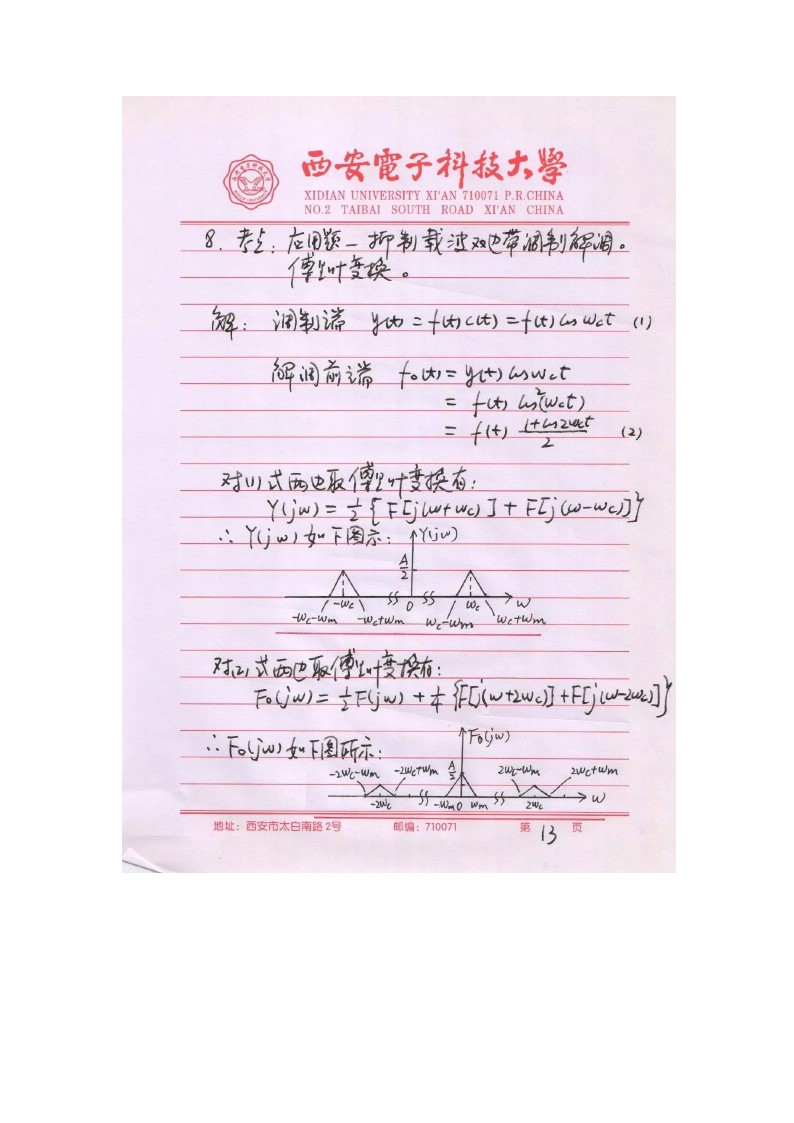 西安電子科技大學
XIDIAN UNIVERSITY XI'AN 710071 P.R.CHINA
NO.2 TAIBAI SOUTH ROAD XI'AN CHINA
8. 考点: 应用题—抑制载波双边带调制解调。
傅里叶变换。
解: 调制端 y(t) = f(t)c(t) = f(t) cos ωct (1)
解调前端 f₀(t) = y(t) cosωct
= f(t) cos²(ωct)
= f(t) (1+cos2ωct)/2 (2)
对(1)式两边取傅里叶变换有:
Y(jω) = 1/2 { F[j(ω+ωc)] + F[j(ω-ωc)]}
∴ Y(jω) 如下图示: Y(jω)
A/2
-ωc 0 ωc ω
-ωc-ωm -ωc+ωm ωc-ωm ωc+ωm
对(2)式两边取傅里叶变换有:
F₀(jω) = 1/2 F(jω) + 1/4 {F[j(ω+2ωc)] + F[j(ω-2ωc)]}
∴ F₀(jω) 如下图所示: F₀(jω)
-2ωc-ωm -2ωc+ωm A/2 2ωc-ωm 2ωc+ωm
-2ωc -ωm 0 ωm 2ωc ω
地址: 西安市太白南路2号 邮编: 710071 第 13 页